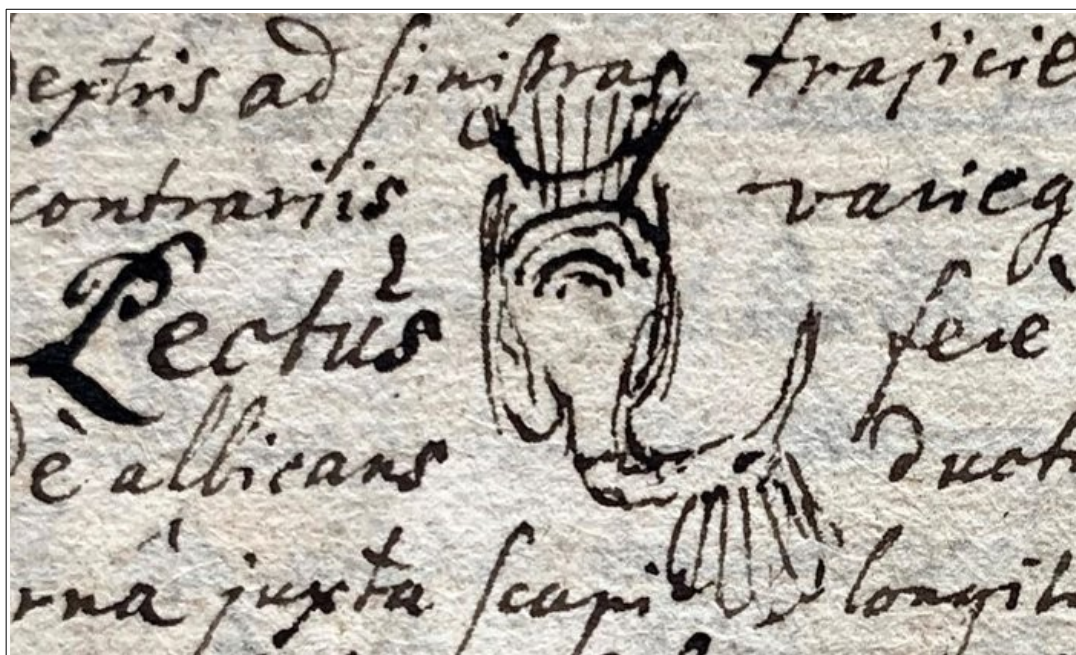 extris ad sinistras trajicie
contrariis varieg
Pectus ferè
dè albicans duct
rnâ juxta scapi longit